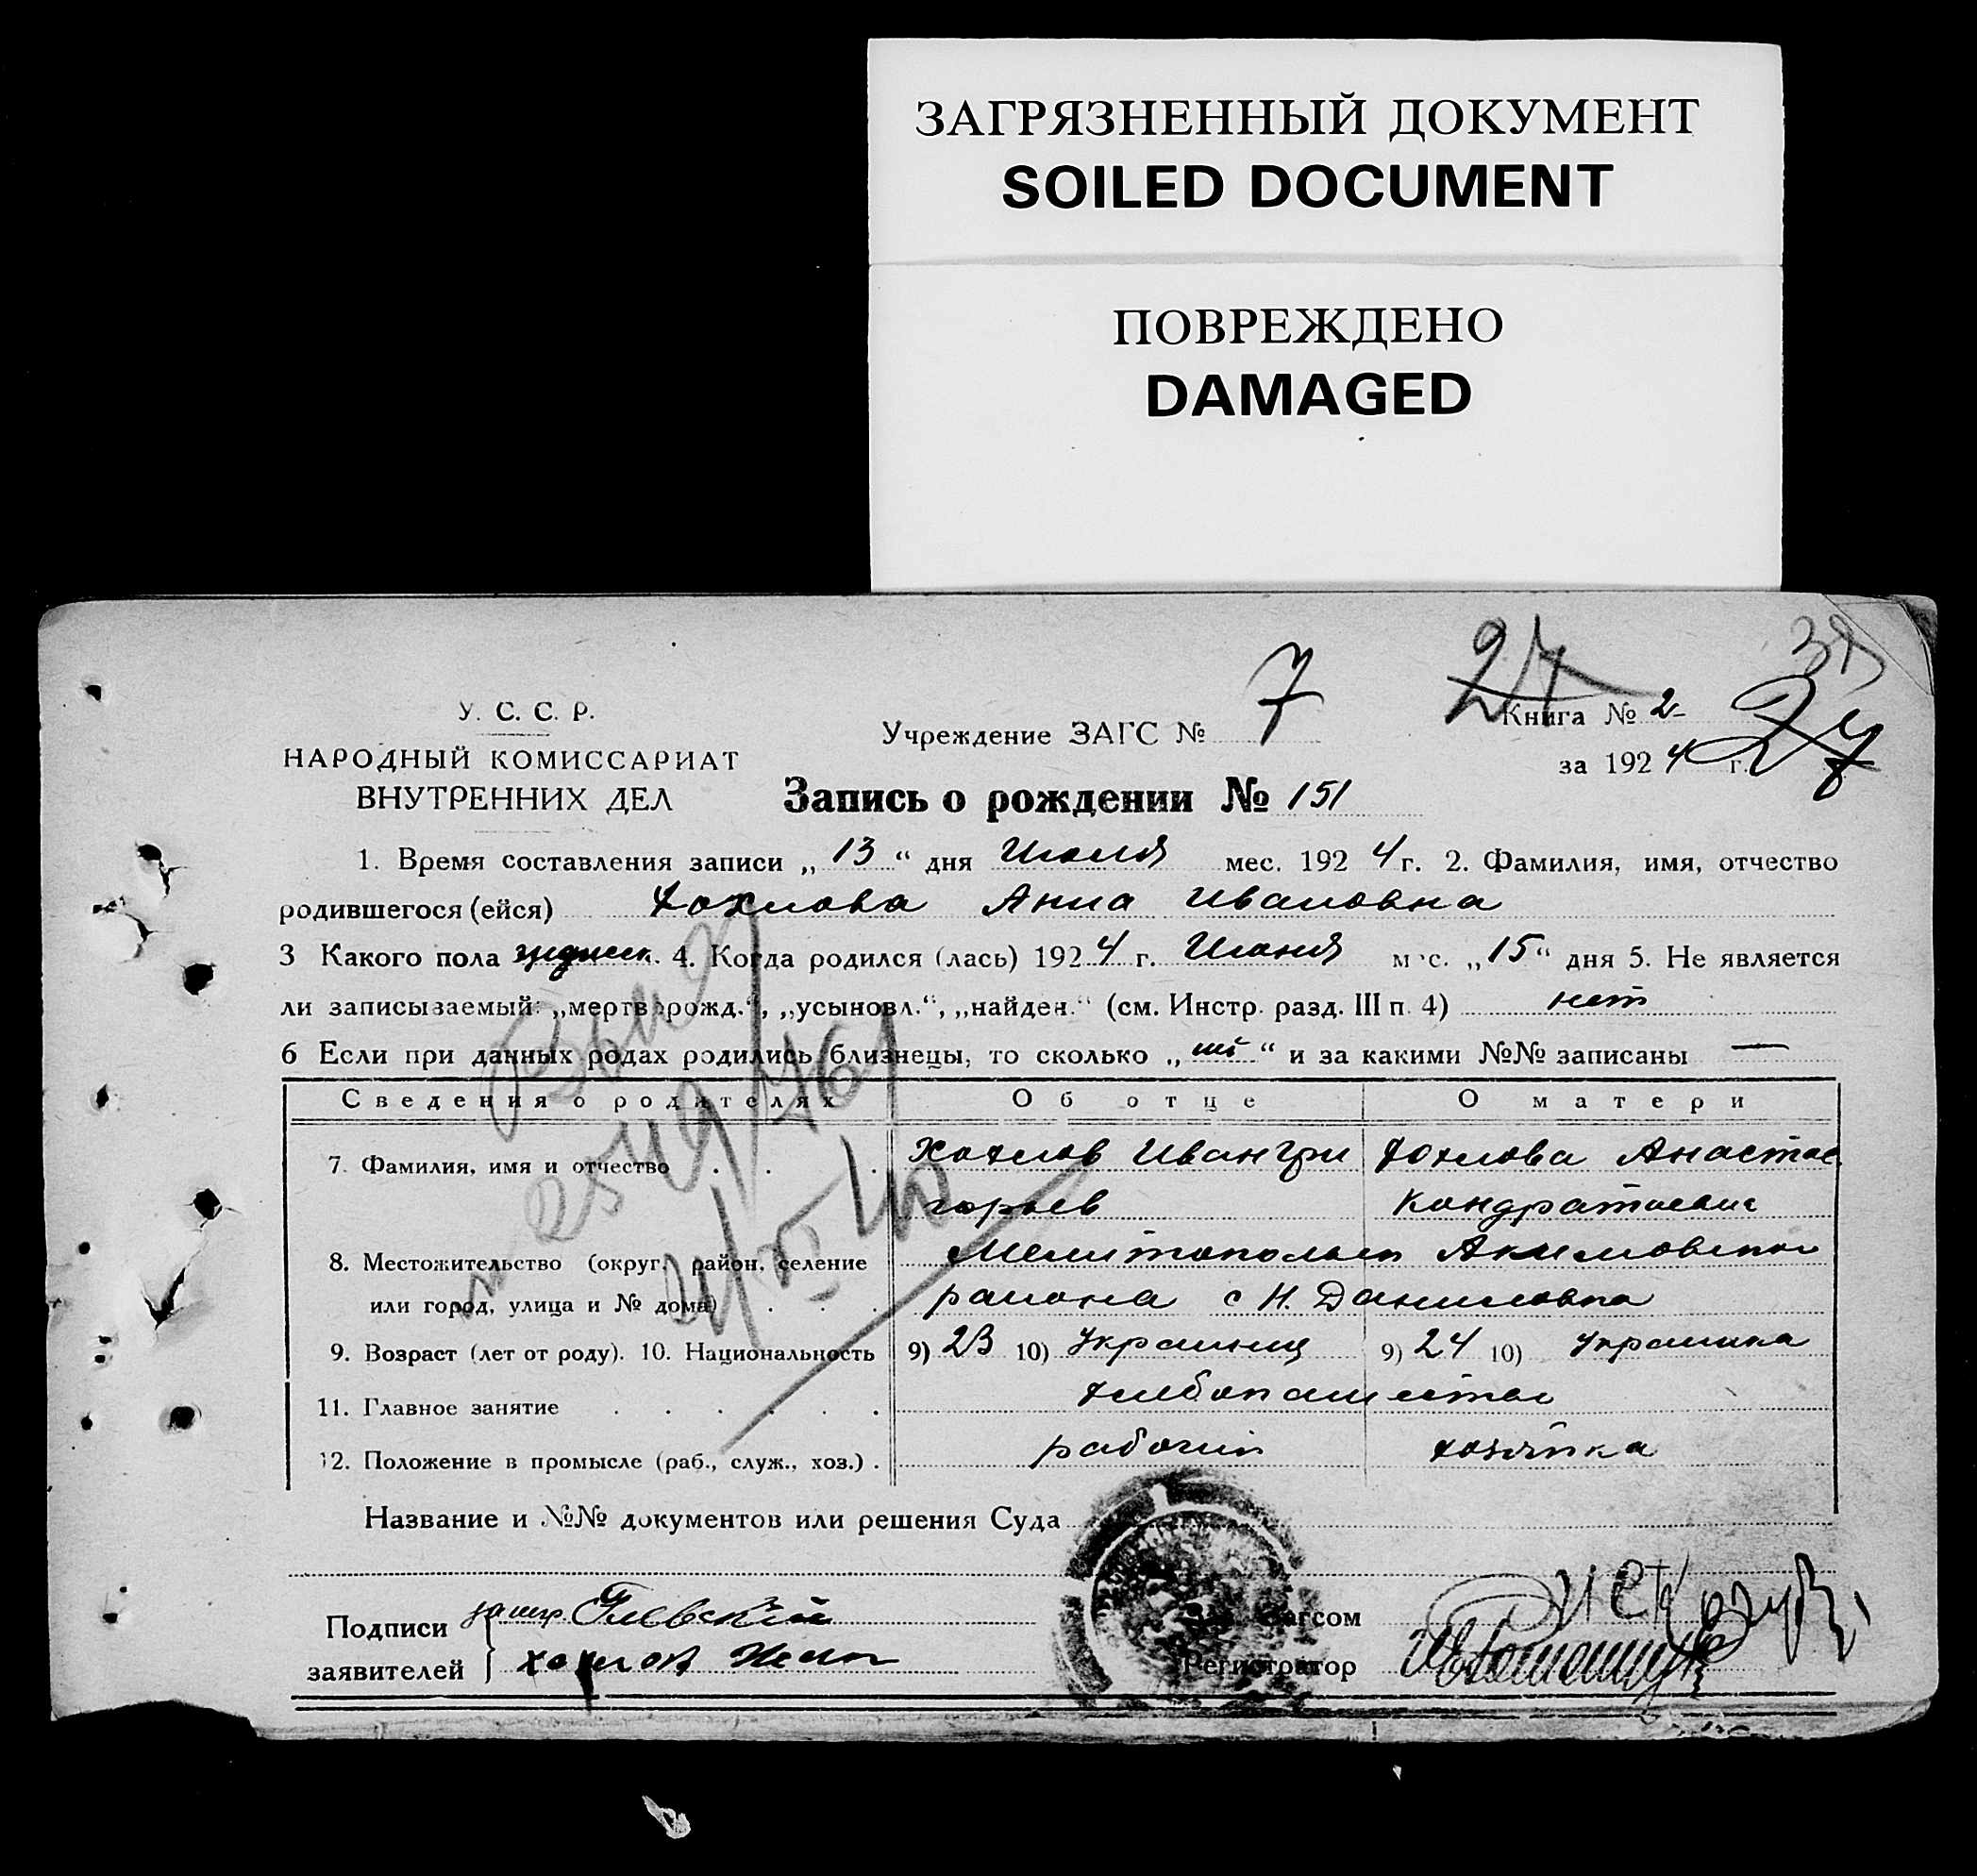 ЗАГРЯЗНЕННЫЙ ДОКУМЕНТ
SOILED DOCUMENT
ПОВРЕЖДЕНО
DAMAGED
38
27
У. С. С. Р.
НАРОДНЫЙ КОМИССАРИАТ
ВНУТРЕННИХ ДЕЛ
Учреждение ЗАГС № 7
Книга № 2
за 1924 г.
27
Запись о рождении № 151
1. Время составления записи „13“ дня Июля мес. 1924 г. 2. Фамилия, имя, отчество
родившегося (ейся) Хохлова Анна Ивановна
3 Какого пола 4. Когда родился (лась) 1924 г. Июня мес. „15“ дня 5. Не является
ли записываемый: „мертворожд.“, „усыновл.“, „найден.“ (см. Инстр. разд. III п. 4) нет
6 Если при данных родах родились близнецы, то сколько „ “ и за какими №№ записаны —
Сведения о родителях Об отце О матери
7. Фамилия, имя и отчество . . . Хохлов Иван Гри Хохлова Анастас
горьев Кондратьевна
8. Местожительство (округ, район, селение Мелитопольск Акимовского
или город, улица и № дома) . . . района с Н. Даниловка
9. Возраст (лет от роду). 10. Национальность 9) 23 10) Украинец 9) 24 10) Украинка
11. Главное занятие . . . . . . хлебопашество
12. Положение в промысле (раб., служ., хоз.) . рабочий хозяйка
Название и №№ документов или решения Суда
Подписи
заявителей Хохлов Иван
Загсом
Регистратор